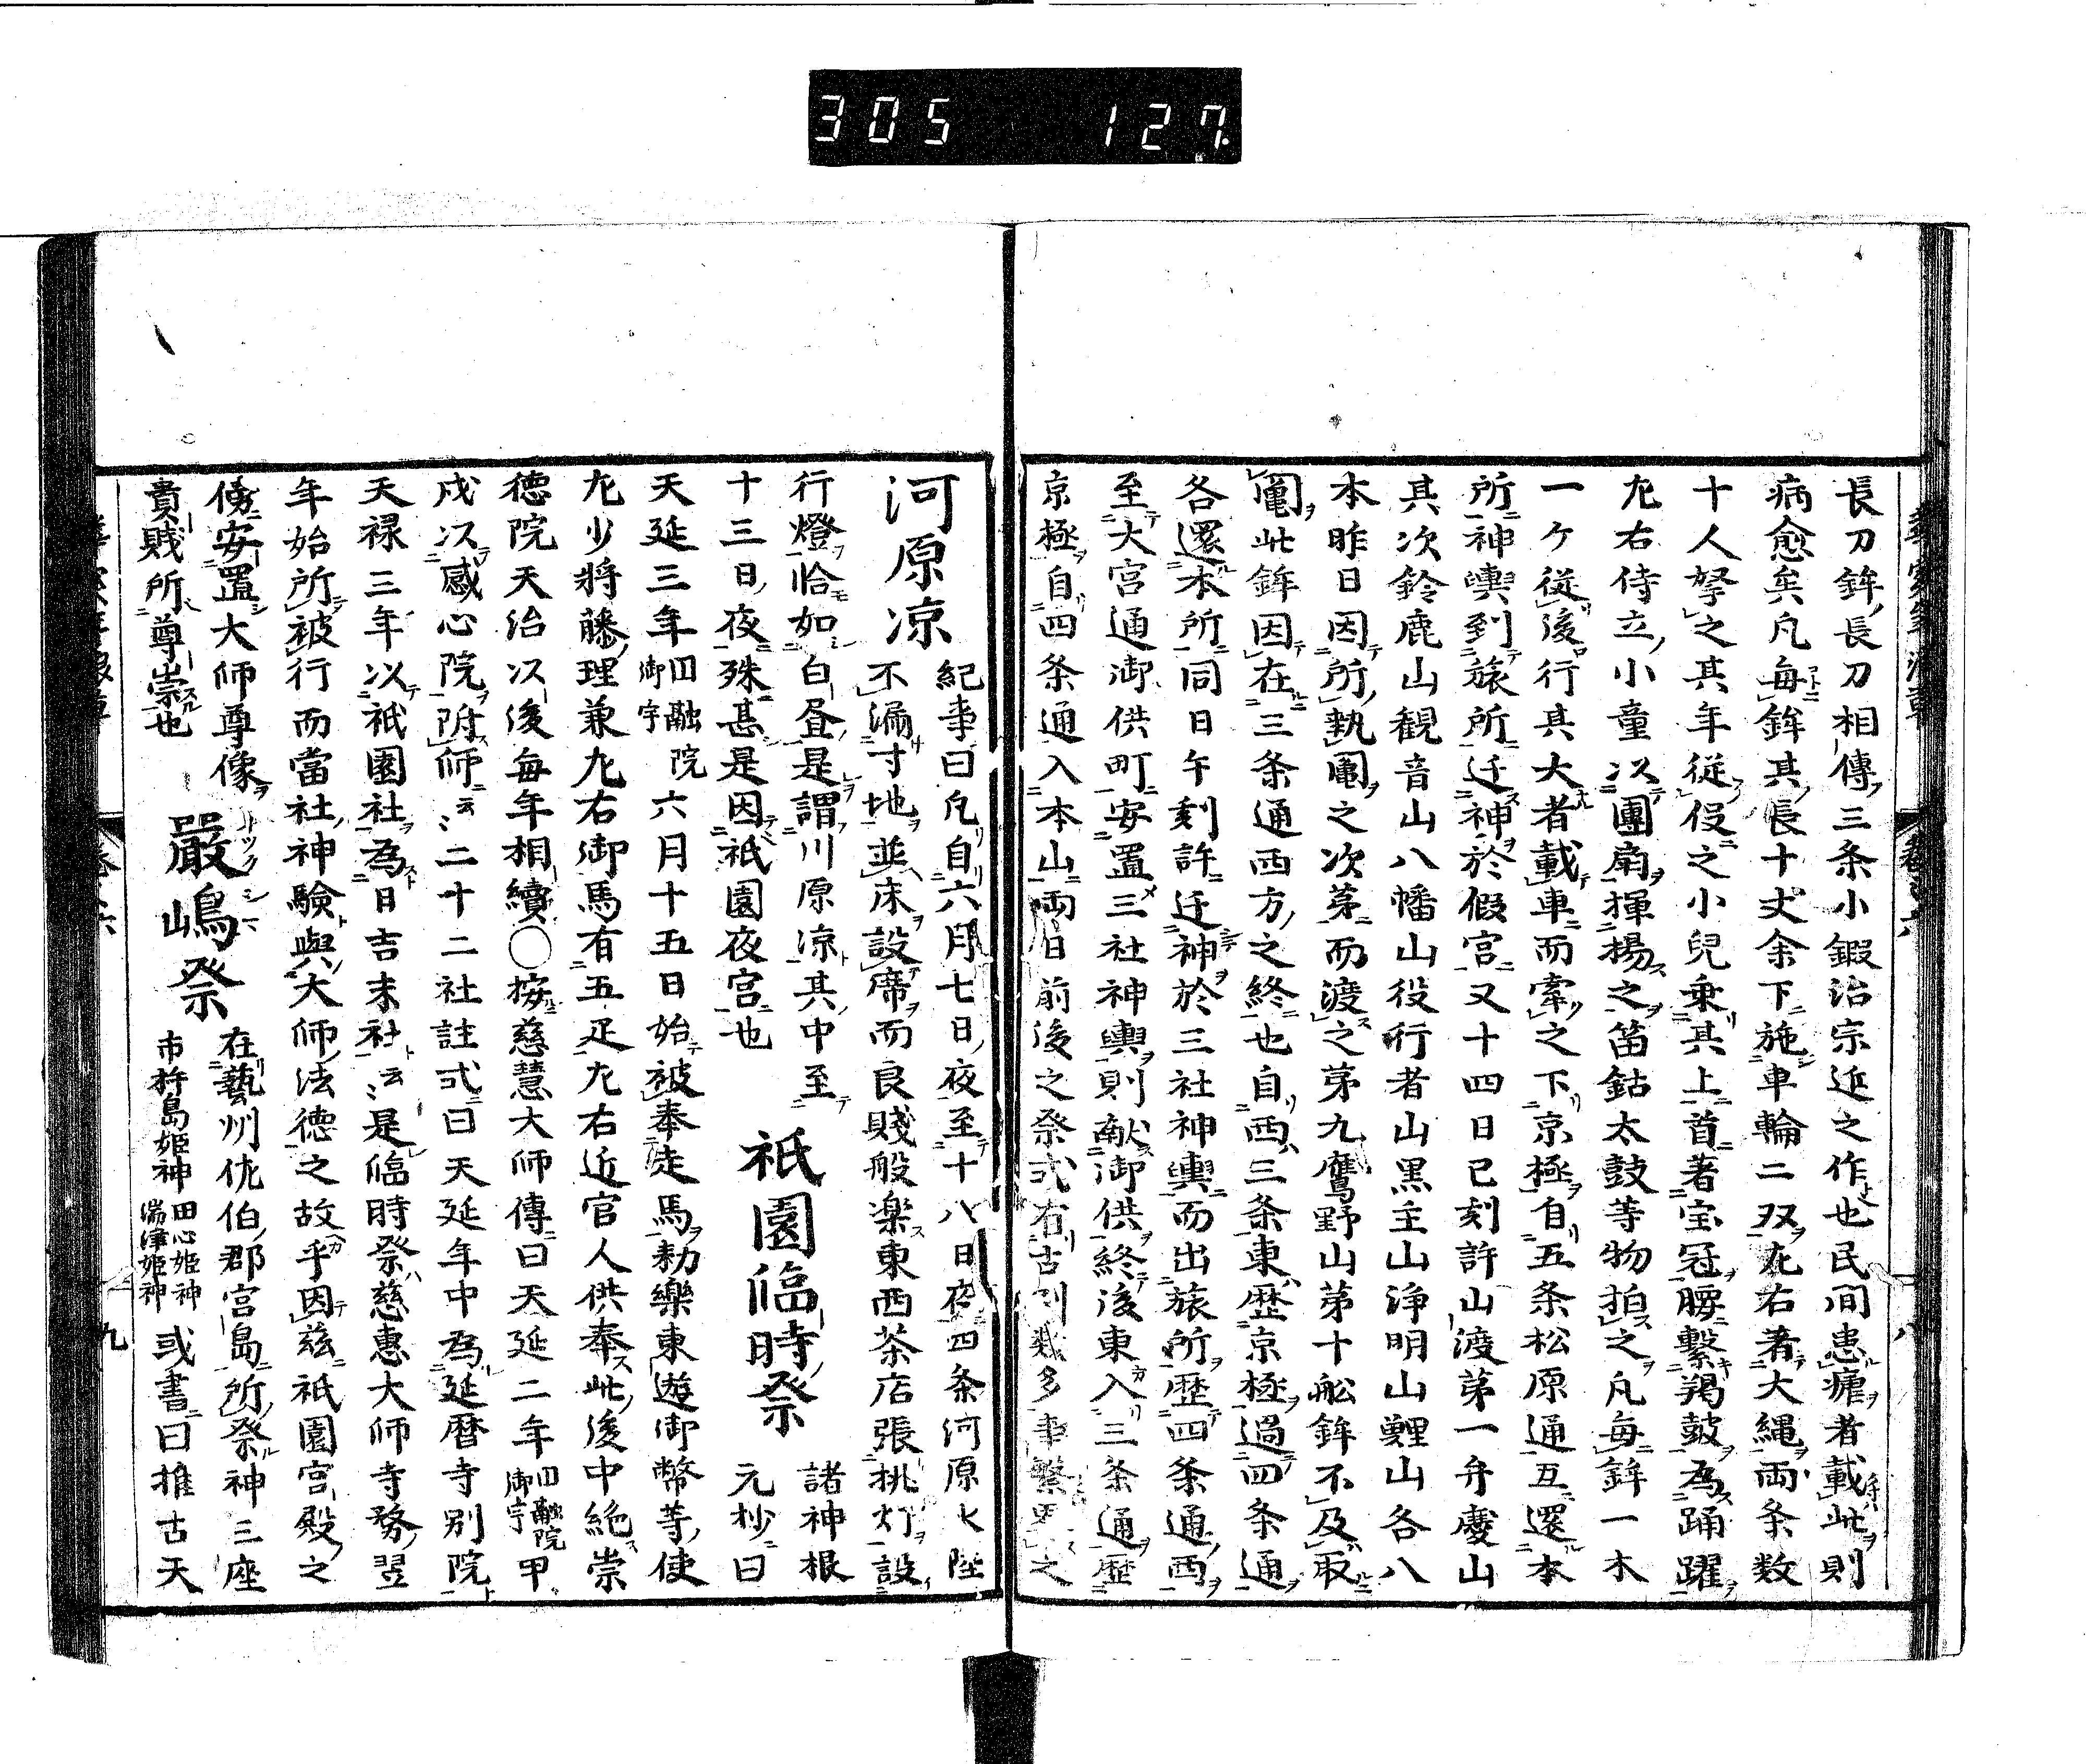 305 127
長刀鉾長刀相傳三条小鍜治宗近之作也民間患瘧者載此則
病愈矣凡毎鉾其長十丈余下施車輪二双左右著大縄両条数
十人拏之其年從役之小兒乗其上首著宝冠腰繫羯鼓為踊躍
左右侍立小童以團扇揮揚之笛鈷太鼓等物拍之凡毎鉾一木
一ヶ從後行其大者載車而牽之下京極自五条松原通互還本
所神輿到旅所迁神於假宮又十四日巳刻許山渡第一弁慶山
其次鈴鹿山観音山八幡山役行者山黒主山浄明山鯉山各八
本昨日因所執鬮之次第而渡之第九鷹野山第十舩鉾不及取
鬮此鉾因在三条通西方之終也自西三条東歴京極過四条通
各還本所同日午刻許迁神於三社神輿而出旅所歴四条通西
至大宮通御供町安置三社神輿則献御供終後東入三条通歴
京極自四条通入本山両日前後之祭式有古例数多事繁畧之
河原凉
紀事曰凡自六月七日夜至十八日夜四条河原水陸
不漏寸地並床設席而良賤般楽東西茶店張挑灯設
行燈恰如白昼是謂川原凉其中至
十三日夜殊甚是因祇園夜宮也
祇園臨時祭
諸神根
元抄曰
天延三年
円融院
御宇
六月十五日始被奉走馬勅樂東遊御幣等使
左少将藤理兼左右御馬有五疋左右近官人供奉此後中絶崇
徳院天治以後毎年相續〇按慈慧大師傳曰天延二年
円融院
御宇
甲
戌以感心院附師云〻二十二社註式曰天延年中為延暦寺別院
天禄三年以祇園社為日吉末社云〻是臨時祭慈惠大師寺務翌
年始所被行而當社神驗與大師法徳之故乎因茲祇園宮殿之
傍安置大師尊像
貴賤所尊崇也
嚴嶋祭
在藝州佐伯郡宮島所祭神三座
市杵島姫神
田心姫神
湍津姫神
或書曰推古天
九